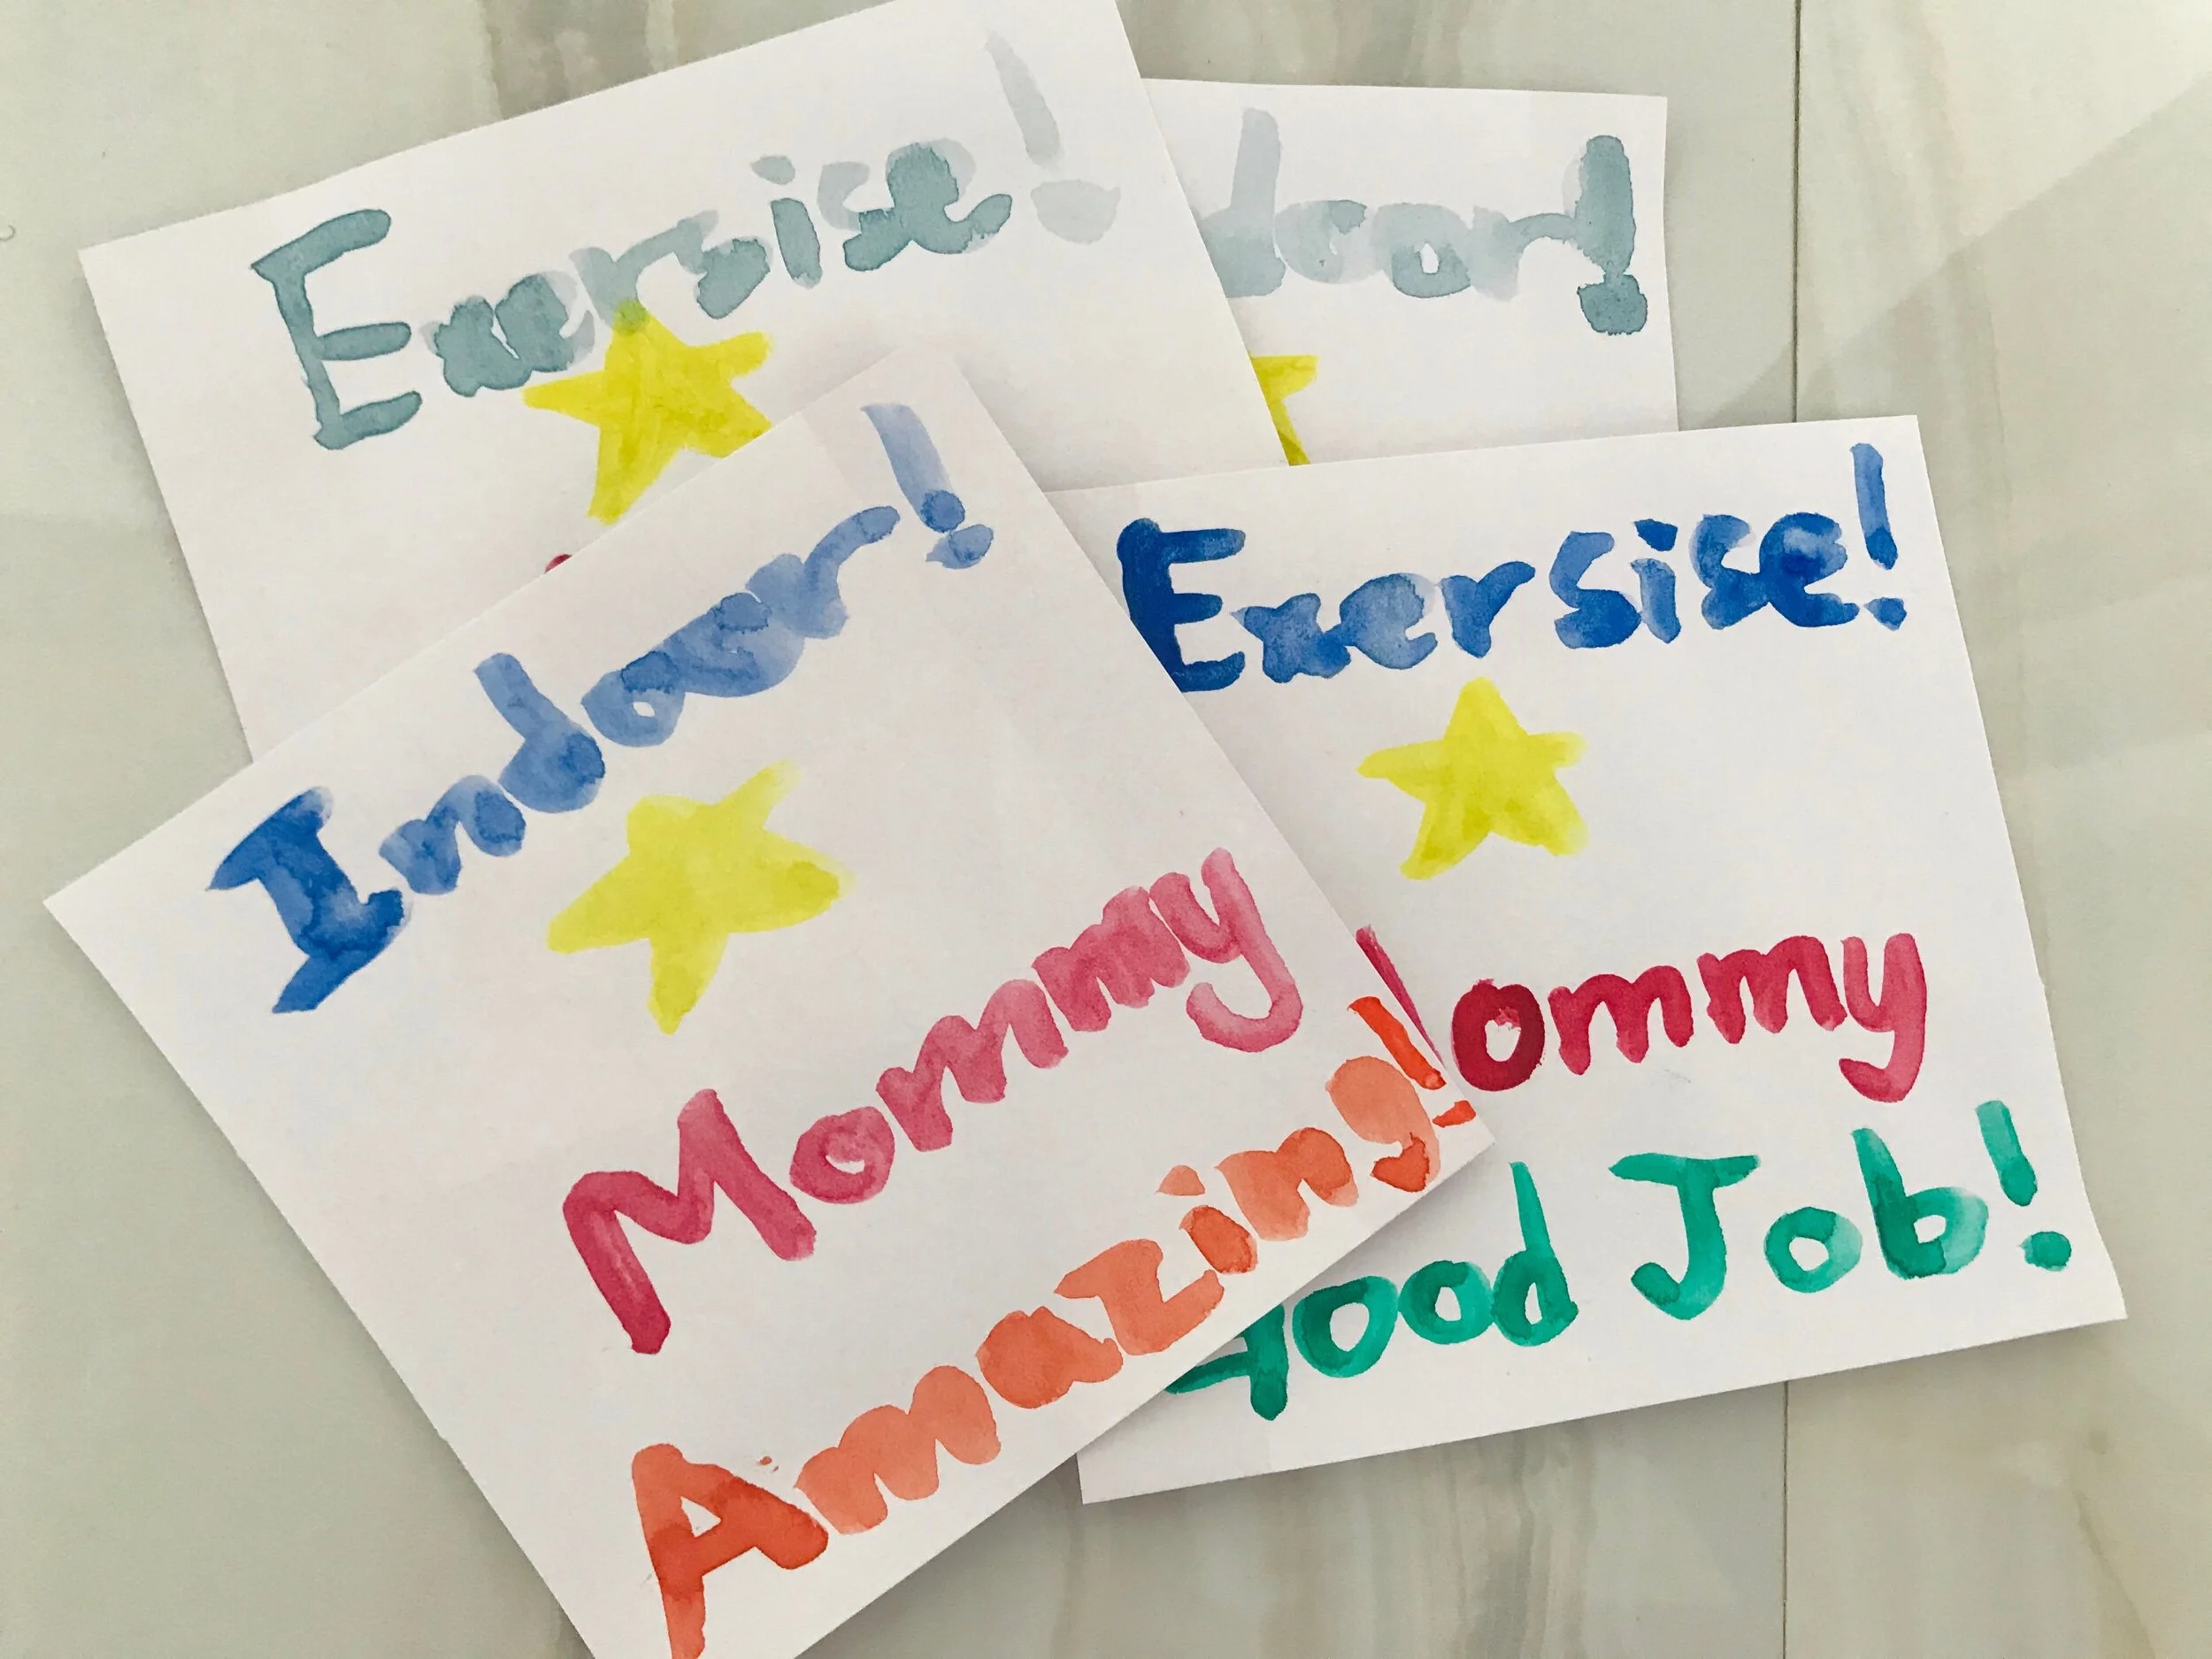 Exersise!
door!
Indoor!
Mommy
Amazing!
Exersise!
ommy
Good Job!